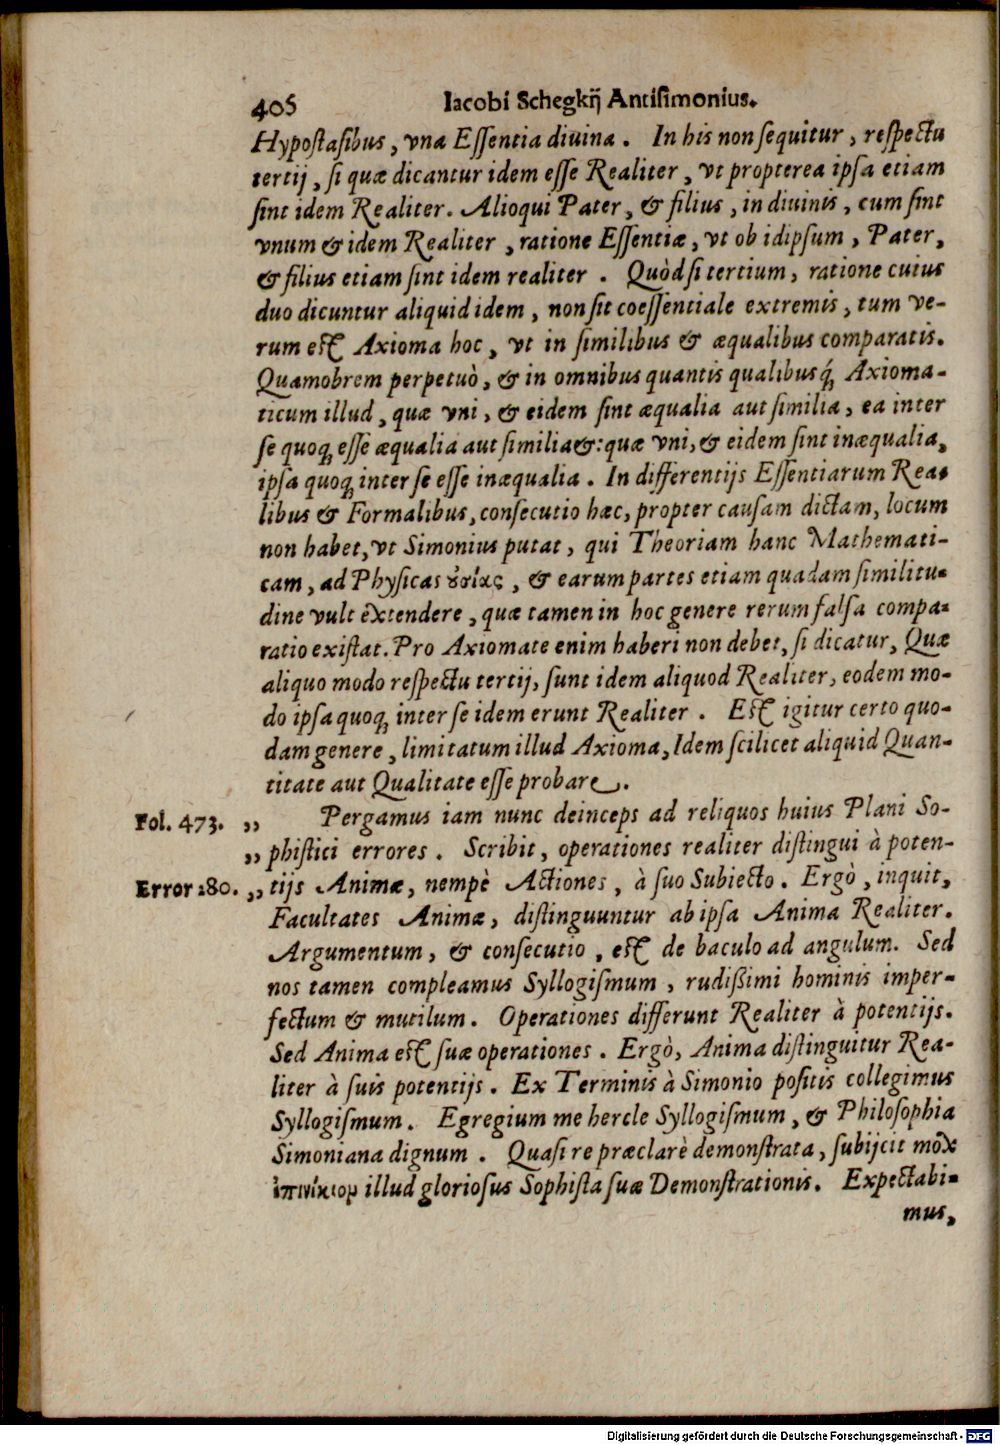 405 Iacobi Schegkij Antisimonius.
Hypostasibus, vna Essentia diuina. In his non sequitur, respectu
tertij, si quæ dicantur idem esse Realiter, vt propterea ipsa etiam
sint idem Realiter. Alioqui Pater, & filius, in diuinis, cum sint
vnum & idem Realiter, ratione Essentiæ, vt ob idipsum, Pater,
& filius etiam sint idem realiter. Quòd si tertium, ratione cuius
duo dicuntur aliquid idem, non sit coessentiale extremis, tum ve-
rum est Axioma hoc, vt in similibus & æqualibus comparatis.
Quamobrem perpetuò, & in omnibus quantis qualibusq́; Axioma-
ticum illud, quæ vni, & eidem sint æqualia aut similia, ea inter
se quoq; esse æqualia aut similia &: quæ vni, & eidem sint inæqualia,
ipsa quoq; inter se esse inæqualia. In differentijs Essentiarum Rea-
libus & Formalibus, consecutio hæc, propter causam dictam, locum
non habet, vt Simonius putat, qui Theoriam hanc Mathemati-
cam, ad Physicas οὐσίας, & earum partes etiam quadam similitu-
dine vult extendere, quæ tamen in hoc genere rerum falsa compa-
ratio existat. Pro Axiomate enim haberi non debet, si dicatur, Quæ
aliquo modo respectu tertij, sunt idem aliquod Realiter, eodem mo-
do ipsa quoq; inter se idem erunt Realiter. Est igitur certo quo-
dam genere, limitatum illud Axioma, Idem scilicet aliquid Quan-
titate aut Qualitate esse probare.
Fol. 473. „ Pergamus iam nunc deinceps ad reliquos huius Plani So-
„ phistici errores. Scribit, operationes realiter distingui à poten-
Error 280. „ tijs Animæ, nempè Actiones, à suo Subiecto. Ergò, inquit,
Facultates Animæ, distinguuntur ab ipsa Anima Realiter.
Argumentum, & consecutio, est de baculo ad angulum. Sed
nos tamen compleamus Syllogismum, rudißimi hominis imper-
fectum & mutilum. Operationes differunt Realiter à potentijs.
Sed Anima est suæ operationes. Ergò, Anima distinguitur Rea-
liter à suis potentijs. Ex Terminis à Simonio positis collegimus
Syllogismum. Egregium me hercle Syllogismum, & Philosophia
Simoniana dignum. Quasi re præclarè demonstrata, subijcit mox
ἐπινίκιον illud gloriosus Sophista suæ Demonstrationis. Expectabi-
mus,
Digitalisierung gefördert durch die Deutsche Forschungsgemeinschaft - DFG